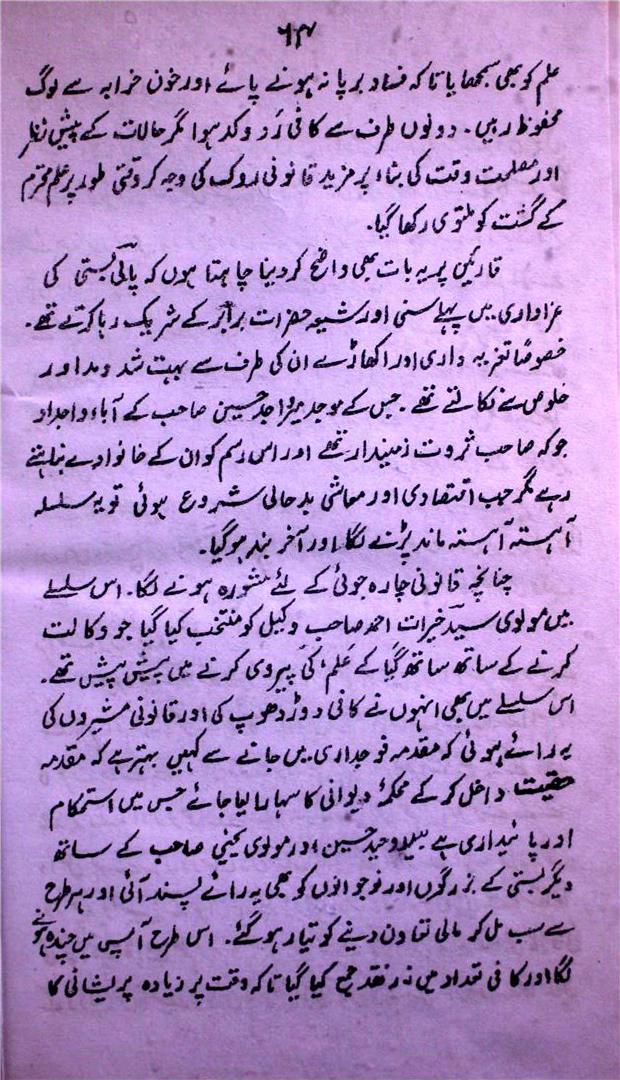 ۶۴
علم کو بھی سمجھایا تاکہ فساد برپا نہ ہونے پائے اور خون خرابہ سے لوگ
محفوظ رہیں۔ دونوں طرف سے کافی رد و کد ہوا مگر حالات کے پیش نظر
اور مصلحت وقت کی بناء پر مزید قانونی روک کی وجہ کر وقتی طور پر علم محترم
کے گشت کو ملتوی رکھا گیا۔
قارئین پر یہ بات بھی واضح کر دینا چاہتا ہوں کہ پالی بستی کی
عزاداری میں پہلے سنی اور شیعہ حضرات برابر کے شریک رہا کرتے تھے۔
خصوصاً تعزیہ داری اور اکھاڑے ان کی طرف سے بہت شد و مد اور
خلوص سے نکالتے تھے۔ جس کے موجد میر واجد حسین صاحب کے آباء و اجداد
جو کہ صاحب ثروت زمیندار تھے اور اس رسم کو ان کے خانوادے نباہتے
رہے مگر جب اقتصادی اور معاشی بدحالی شروع ہوئی تو یہ سلسلہ
آہستہ آہستہ ماند پڑنے لگا اور آخر بند ہو گیا۔
چنانچہ قانونی چارہ جوئی کے لئے مشورہ ہونے لگا۔ اس سلسلے
میں مولوی سید خیرات احمد صاحب وکیل کو منتخب کیا گیا جو وکالت
کرنے کے ساتھ ساتھ گیا کے علم کی پیروی کرنے میں پیش پیش تھے۔
اس سلسلے میں بھی انہوں نے کافی دوڑ دھوپ کی اور قانونی مشیروں کی
یہ رائے ہوئی کہ مقدمہ فوجداری میں جانے سے کہیں بہتر ہے کہ مقدمہ
حقیت داخل کر کے محکمۂ دیوانی کا سہارا لیا جائے جس میں استحکام
اور پائیداری ہے سید وحید حسین اور مولوی یحییٰ صاحب کے ساتھ
دیگر بستی کے بزرگوں اور نوجوانوں کو بھی یہ رائے پسند آئی اور ہر طرح
سے سب مل کر مالی تعاون دینے کو تیار ہو گئے۔ اس طرح آپس میں چندہ ہونے
لگا اور کافی تعداد میں زر نقد جمع کیا گیا تاکہ وقت پر زیادہ پریشانی کا